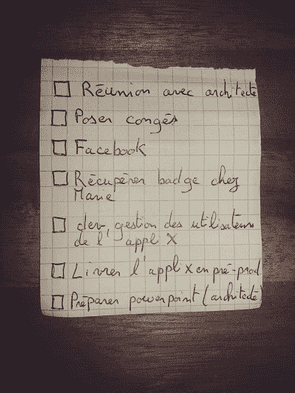 Réunion avec architecte
Poser congés
Facebook
Récupérer badge chez
Marie
dev, gestion des utilisateurs
de l'appli X
Livrer l'appli X en pré-prod
Préparer powerpoint (architecte)